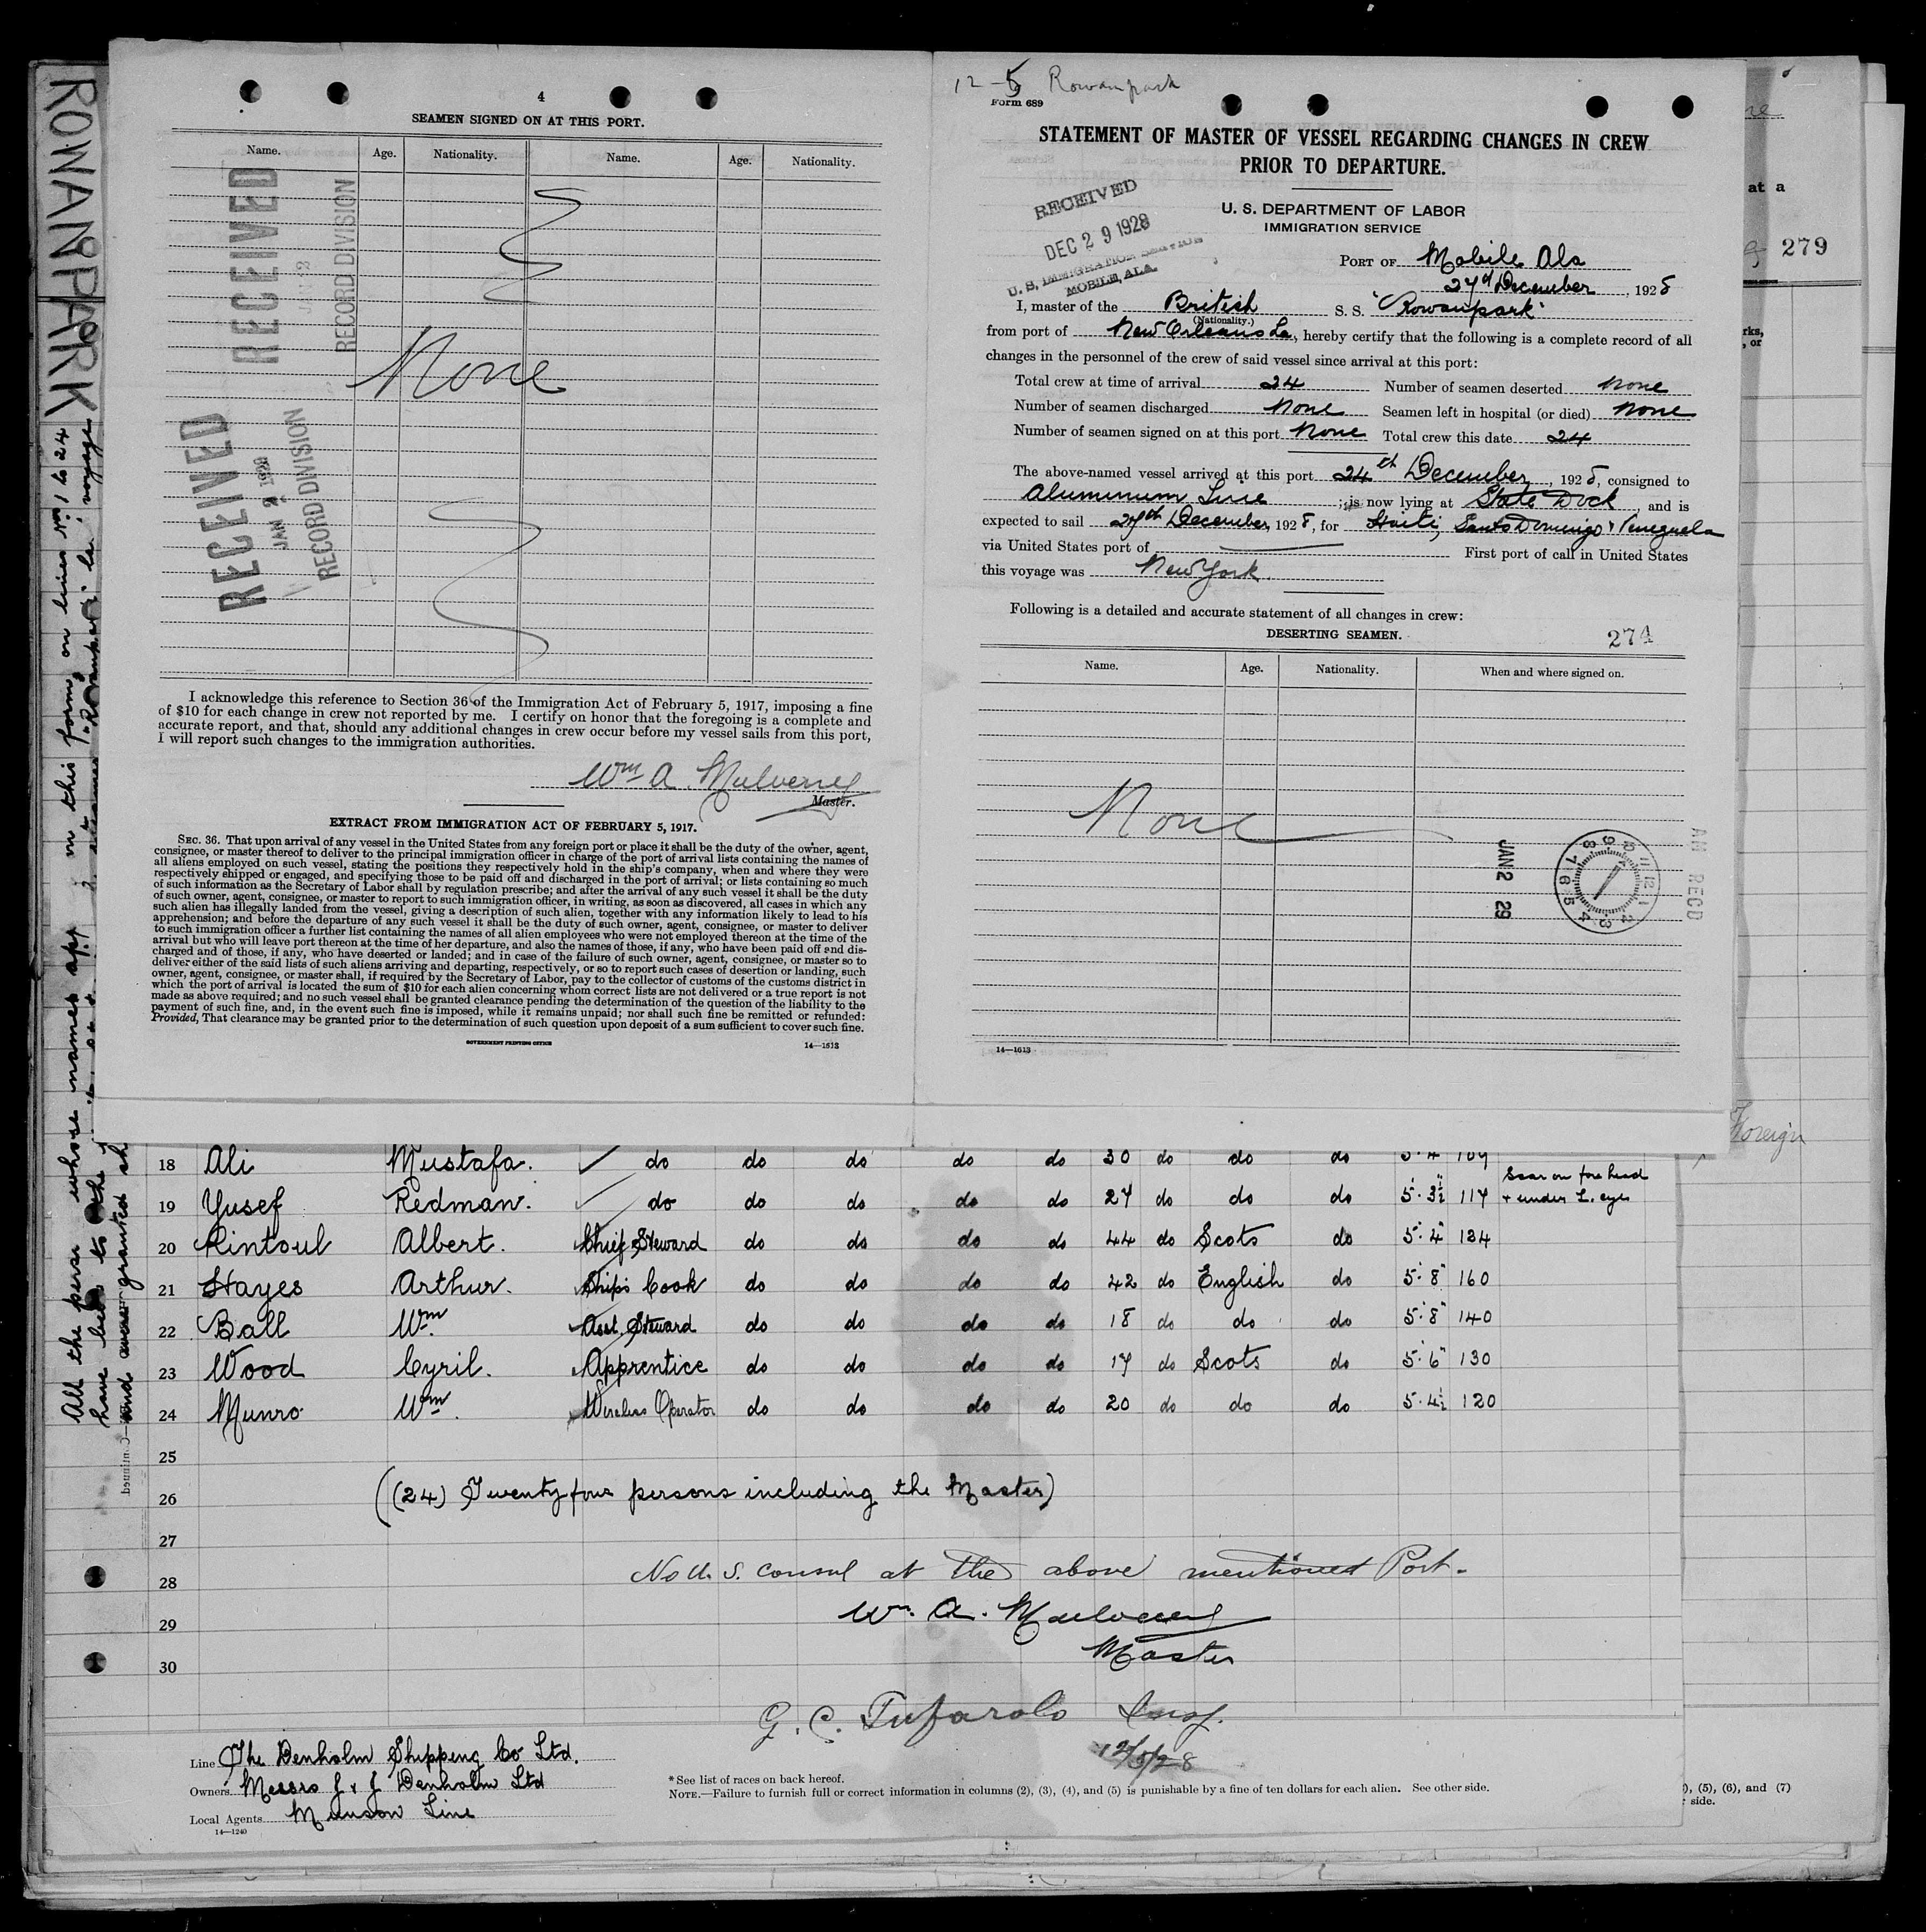 ROWANPARK
4
SEAMEN SIGNED ON AT THIS PORT.
Name. Age. Nationality. Name. Age. Nationality.
RECEIVED
JAN 2
RECORD DIVISION
None
RECEIVED
JAN 2 1929
RECORD DIVISION
I acknowledge this reference to Section 36 of the Immigration Act of February 5, 1917, imposing a fine
of $10 for each change in crew not reported by me. I certify on honor that the foregoing is a complete and
accurate report, and that, should any additional changes in crew occur before my vessel sails from this port,
I will report such changes to the immigration authorities.
Wm A. Mulverney
Master.
EXTRACT FROM IMMIGRATION ACT OF FEBRUARY 5, 1917.
SEC. 36. That upon arrival of any vessel in the United States from any foreign port or place it shall be the duty of the owner, agent,
consignee, or master thereof to deliver to the principal immigration officer in charge of the port of arrival lists containing the names of
all aliens employed on such vessel, stating the positions they respectively hold in the ship's company, when and where they were
respectively shipped or engaged, and specifying those to be paid off and discharged in the port of arrival; or lists containing so much
of such information as the Secretary of Labor shall by regulation prescribe; and after the arrival of any such vessel it shall be the duty
of such owner, agent, consignee, or master to report to such immigration officer, in writing, as soon as discovered, all cases in which any
such alien has illegally landed from the vessel, giving a description of such alien, together with any information likely to lead to his
apprehension; and before the departure of any such vessel it shall be the duty of such owner, agent, consignee, or master to deliver
to such immigration officer a further list containing the names of all alien employees who were not employed thereon at the time of the
arrival but who will leave port thereon at the time of her departure, and also the names of those, if any, who have been paid off and dis-
charged and of those, if any, who have deserted or landed; and in case of the failure of such owner, agent, consignee, or master so to
deliver either of the said lists of such aliens arriving and departing, respectively, or so to report such cases of desertion or landing, such
owner, agent, consignee, or master shall, if required by the Secretary of Labor, pay to the collector of customs of the customs district in
which the port of arrival is located the sum of $10 for each alien concerning whom correct lists are not delivered or a true report is not
made as above required; and no such vessel shall be granted clearance pending the determination of the question of the liability to the
payment of such fine, and, in the event such fine is imposed, while it remains unpaid; nor shall such fine be remitted or refunded:
Provided, That clearance may be granted prior to the determination of such question upon deposit of a sum sufficient to cover such fine.
GOVERNMENT PRINTING OFFICE
14—1613
12-5 Rowanpark
Form 689
STATEMENT OF MASTER OF VESSEL REGARDING CHANGES IN CREW
PRIOR TO DEPARTURE.
RECEIVED
DEC 29 1928
U. S. IMMIGRATION SERVICE
MOBILE, ALA.
U. S. DEPARTMENT OF LABOR
IMMIGRATION SERVICE
PORT OF Mobile Ala
27th December, 1928
I, master of the British S. S. "Rowanpark"
(Nationality.)
from port of New Orleans La, hereby certify that the following is a complete record of all
changes in the personnel of the crew of said vessel since arrival at this port:
Total crew at time of arrival 24 Number of seamen deserted None
Number of seamen discharged None Seamen left in hospital (or died) None
Number of seamen signed on at this port None Total crew this date 24
The above-named vessel arrived at this port 24th December, 1928, consigned to
Aluminum Line; is now lying at State Dock, and is
expected to sail 27th December, 1928, for Haiti, Santo Domingo & Venezuela
via United States port of First port of call in United States
this voyage was New York.
Following is a detailed and accurate statement of all changes in crew:
DESERTING SEAMEN.
274
Name. Age. Nationality. When and where signed on.
None
JAN 2 29
AM RECD
14—1613
at a
279
rks,
, or
Foreign
18 Ali Mustafa. do do do do do 30 do do do 5·4 109
19 Yusef Redman. do do do do do 27 do do do 5·3½ 117 Scar on fore head + under L. eye
20 Rintoul Albert. Chief Steward do do do do 44 do Scots do 5·4" 134
21 Hayes Arthur. Ships Cook do do do do 42 do English do 5·8" 160
22 Ball Wm. Asst. Steward do do do do 18 do do do 5·8" 140
23 Wood Cyril. Apprentice do do do do 17 do Scots do 5·6" 130
24 Munro Wm. Wireless Operator do do do do 20 do do do 5·4½ 120
25
26 ((24) Twenty four persons including the Master)
27
28 No U. S. Consul at the above mentioned Port.
29 Wm. A. Mulverney
Master
30
G. C. Tufarolo Insp.
12/5/28
Line The Denholm Shipping Co Ltd.
Owners Messrs J & J Denholm Ltd
Local Agents Munson Line
14—1240
*See list of races on back hereof.
NOTE.—Failure to furnish full or correct information in columns (2), (3), (4), and (5) is punishable by a fine of ten dollars for each alien. See other side.
), (5), (6), and (7)
side.